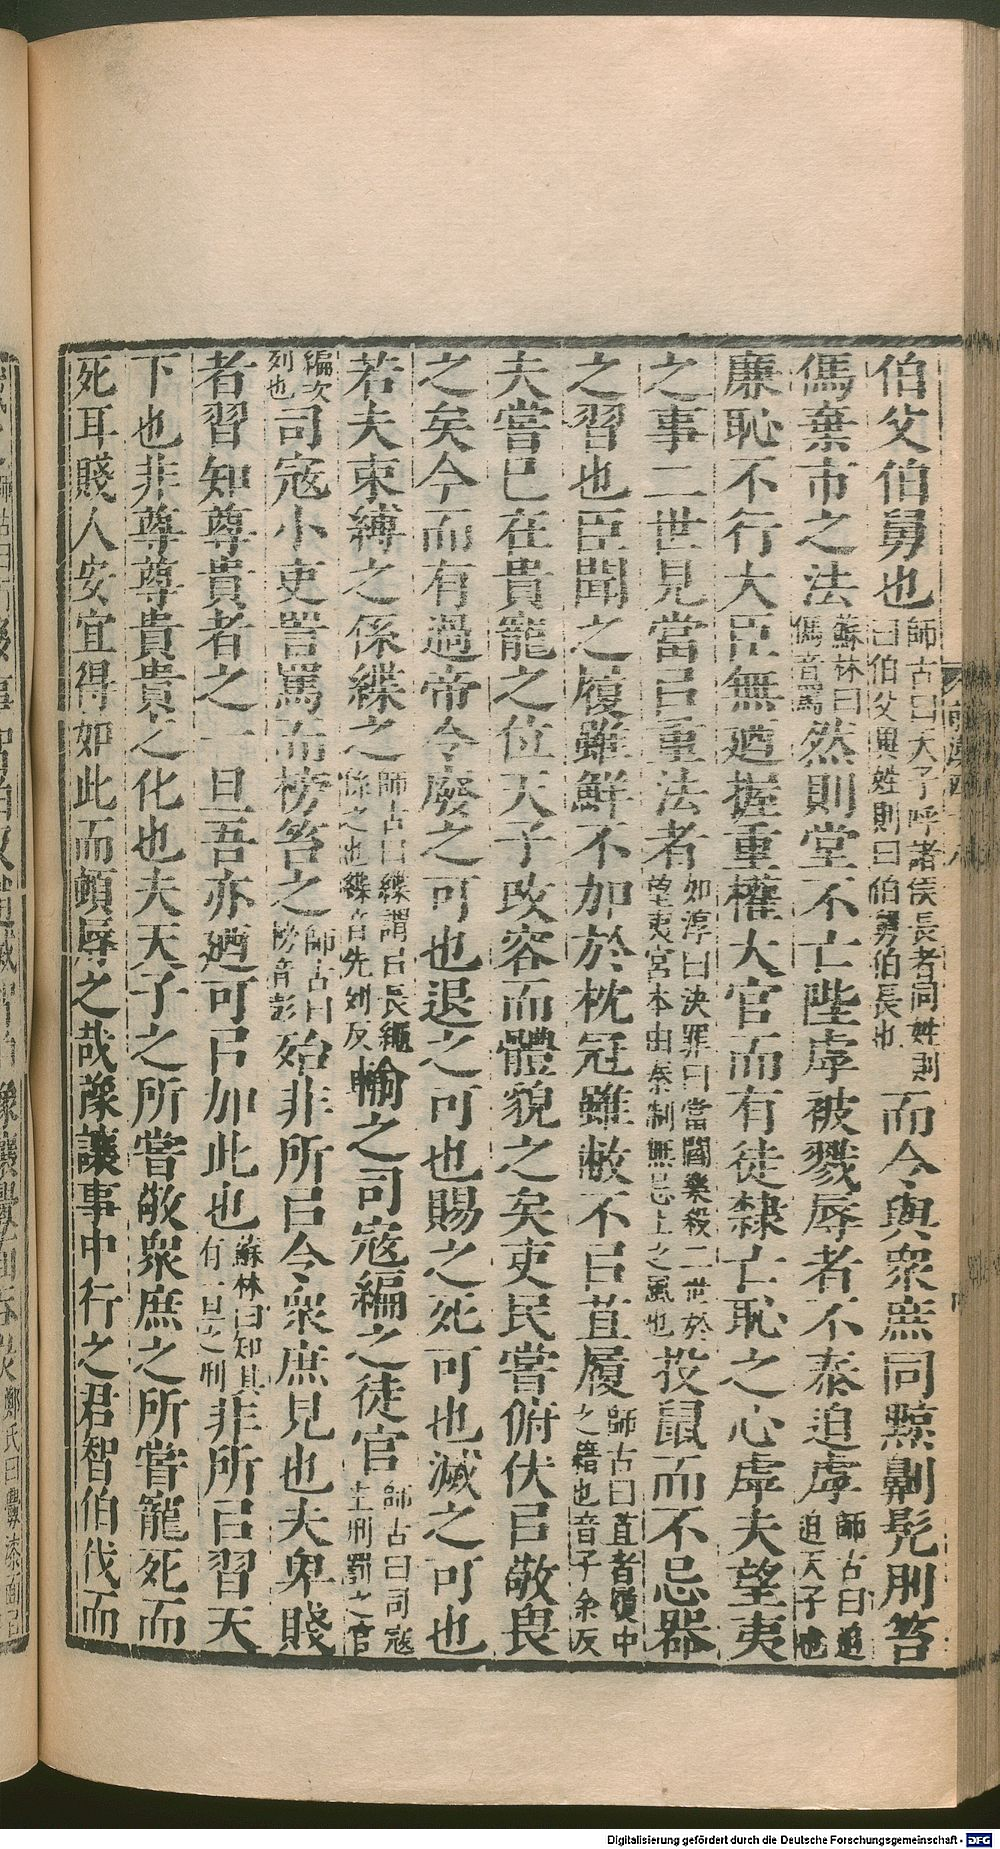 伯父伯舅也師古曰天子呼諸侯長者同姓則曰伯父異姓則曰伯舅伯長也而今與衆庶同黥劓髡刖笞
傌棄市之法蘇林曰傌音罵然則堂不亡陛虖被戮辱者不泰迫虖師古曰迫迫天子也
廉恥不行大臣無廼握重權大官而有徒隸亡恥之心虖夫望夷
之事二世見當㠯重法者如淳曰決罪曰當閻樂殺二世於望夷宮本由秦制無忌上之風也投鼠而不忌器
之習也臣聞之履雖鮮不加於枕冠雖敝不㠯苴履師古曰苴者履中之藉也音子余反
夫嘗已在貴寵之位天子改容而體貌之矣吏民嘗俯伏㠯敬畏
之矣今而有過帝令廢之可也退之可也賜之死可也滅之可也
若夫束縛之係緤之師古曰緤謂㠯長繩係之也緤音先列反輸之司寇編之徒官師古曰司寇主刑罰之官
編次列也司寇小吏詈罵而榜笞之師古曰榜音彭殆非所㠯令衆庶見也夫卑賤
者習知尊貴者之一旦吾亦廼可㠯加此也蘇林曰知其有一旦之刑非所㠯習天
下也非尊尊貴貴之化也夫天子之所嘗敬衆庶之所嘗寵死而
死耳賤人安宜得如此而頓辱之哉豫讓事中行之君智伯伐而
Digitalisierung gefördert durch die Deutsche Forschungsgemeinschaft - DFG